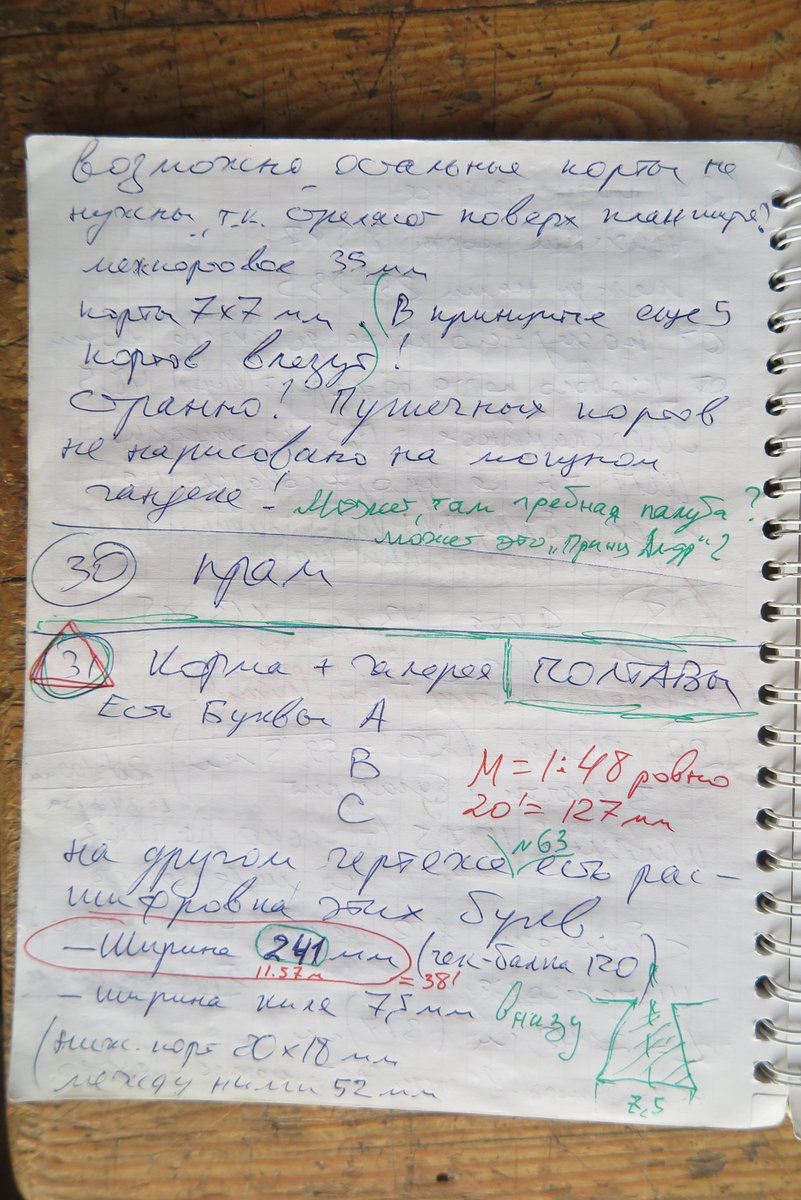 возможно остальные порты не
нужны, т.к. стреляют поверх планширя?
межпортовое 35 мм
порты 7x7 мм. (В принципе еще 5
портов влезут)!
Странно! Пушечных портов
не нарисовано на мощном
гандеке! Может, там гребная палуба?
может это "Принц Алдр"?
30 прам
31 Корма + галерея ПОЛТАВЫ
Есть Буквы А
В
С
М = 1:48 ровно
20' = 127 мм
на другом чертеже №63 есть рас-
шифровка этих букв.
– Ширина 241 мм (чек-балка 120)
11.57 м = 38'
– ширина киля 7,5 мм внизу
(ниж. порт 20x18 мм
между ними 52 мм
7,5